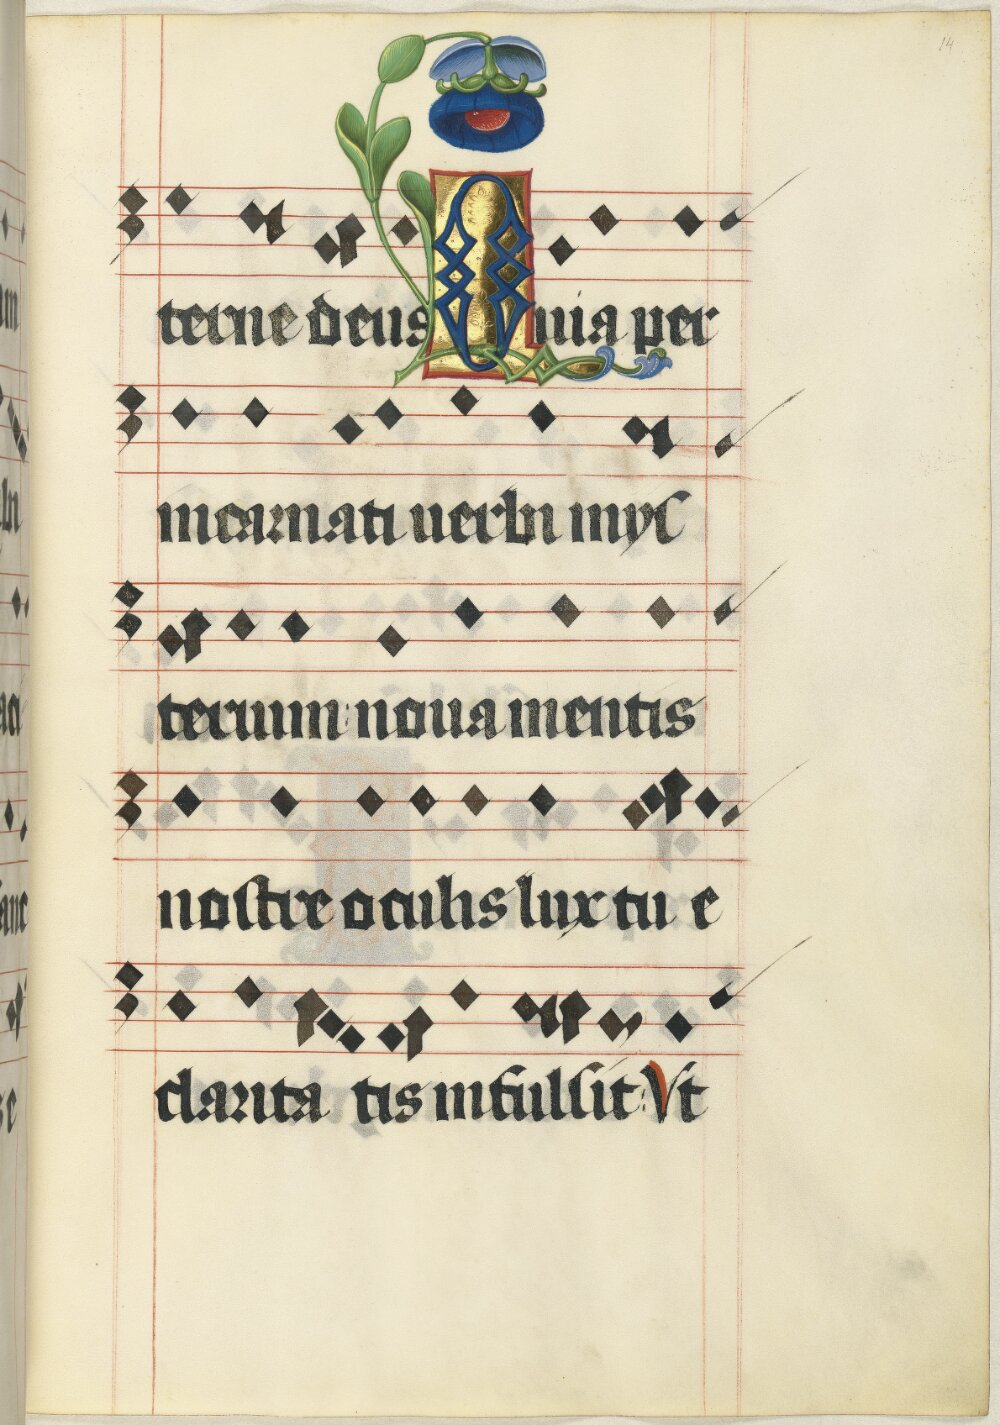 14
terne deus Quia per
incarnati uerbi mys
terium noua mentis
nostre oculis lux tu e
clarita tis infulsit Vt